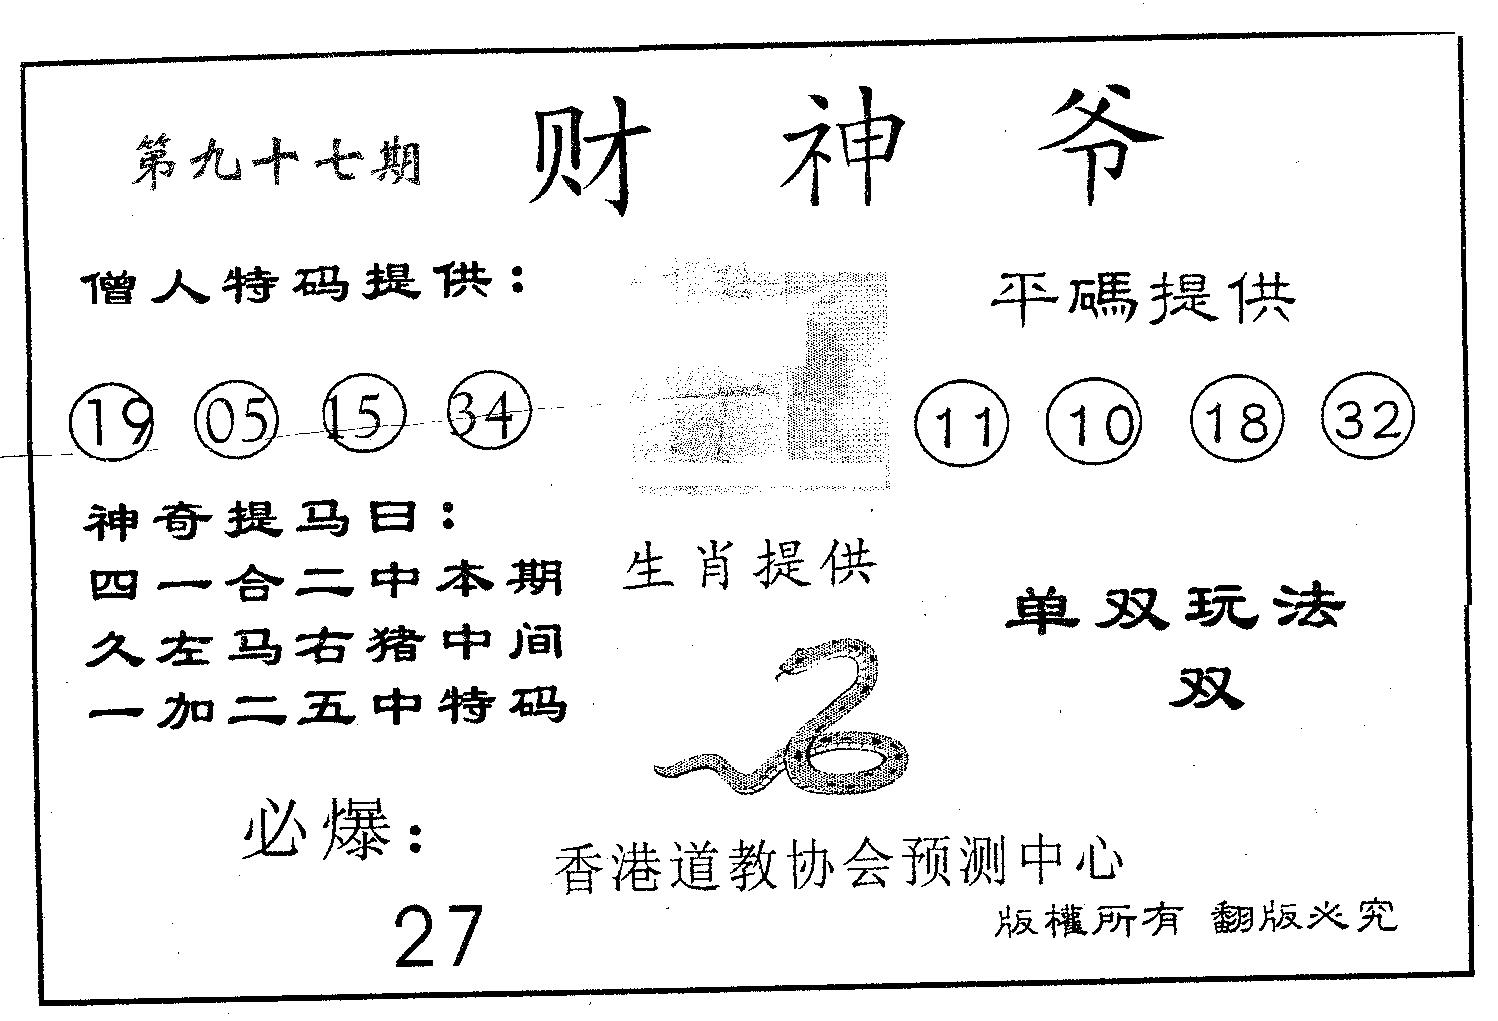 第九十七期
财神爷
僧人特码提供：
19 05 15 34
平碼提供
11 10 18 32
神奇提马曰：
四一合二中本期
久左马右猪中间
一加二五中特码
生肖提供
单双玩法
双
必爆：
27
香港道教协会预测中心
版權所有 翻版必究